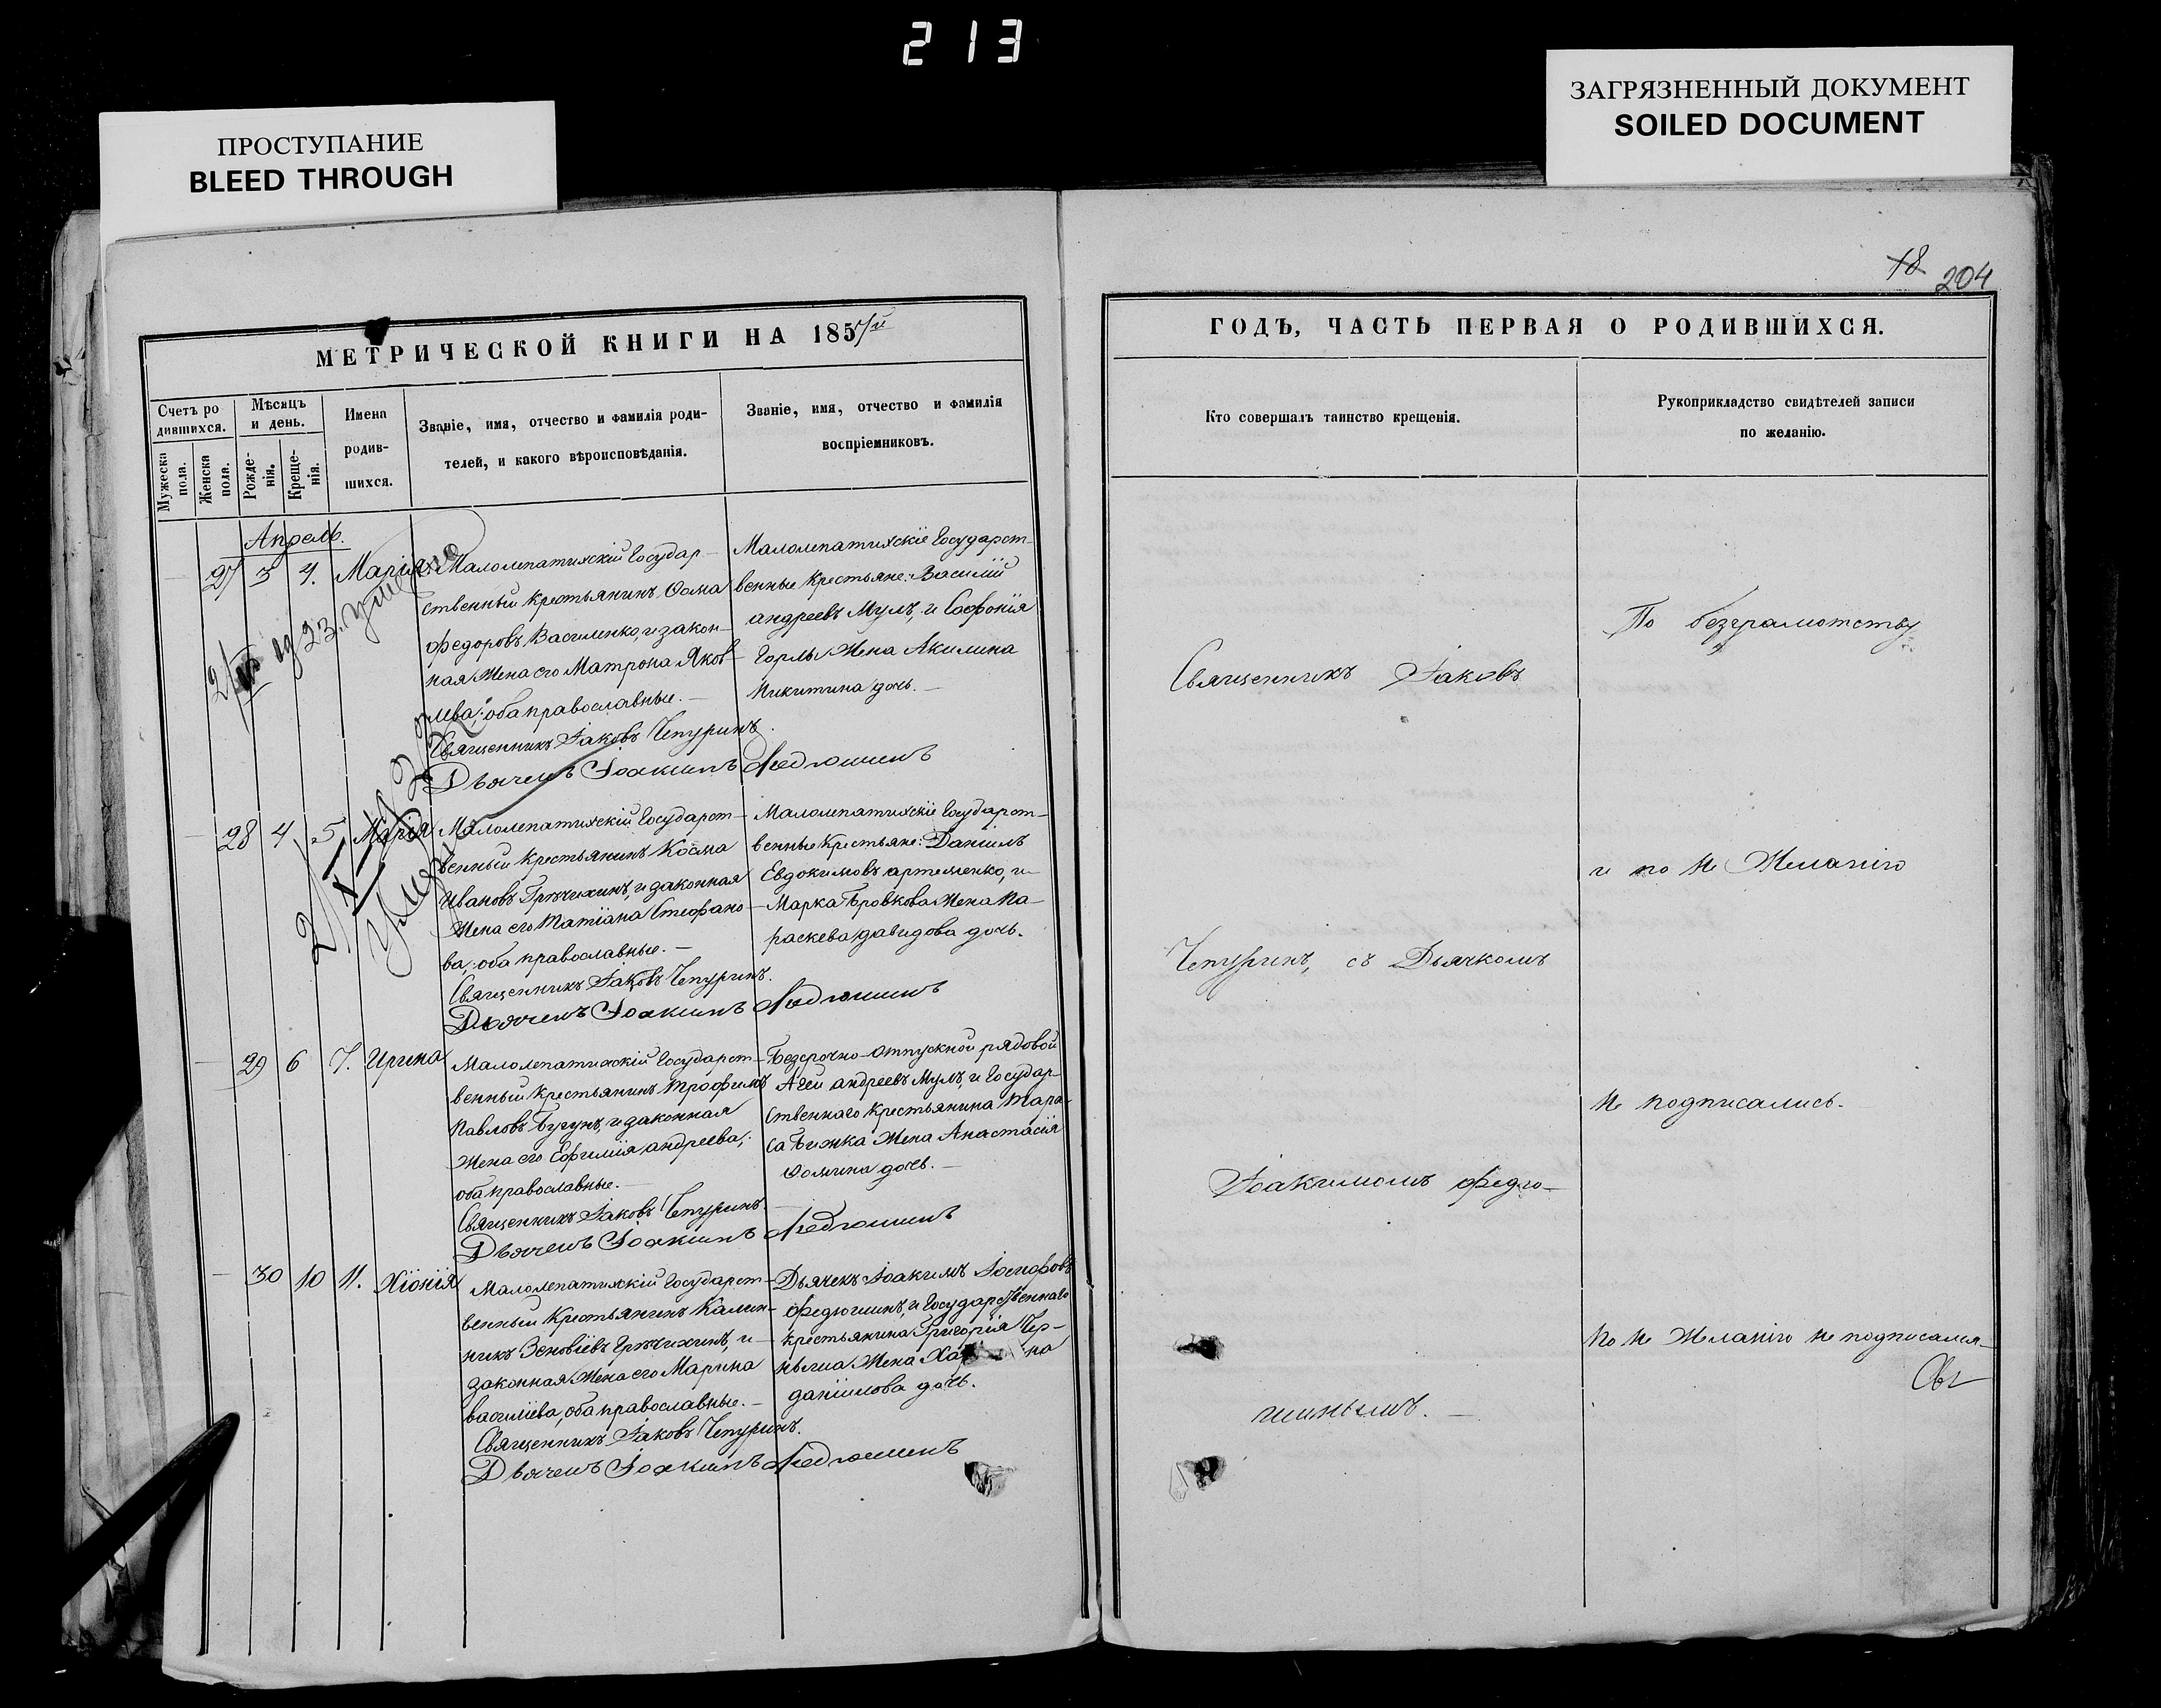 213
ПРОСТУПАНИЕ
BLEED THROUGH
ЗАГРЯЗНЕННЫЙ ДОКУМЕНТ
SOILED DOCUMENT
МЕТРИЧЕСКОЙ КНИГИ НА 185
Счетъ ро
дившихся.
Мужеска
пола.
Женска
пола.
Мѣсяцъ
и день.
Рожде-
нія.
Креще-
нія.
Имена
родив-
шихся.
Званіе, имя, отчество и фамилія роди-
телей, и какого вѣроисповѣданія.
Званіе, имя, отчество и фамилія
воспріемниковъ.
Апрель.
27 3 4. Марія
Малолепатихскій Государ-
ственный крестьянинъ Ѳома
Федоровъ Василенко, и закон-
ная Жена его Матрона Яков-
лева; оба православные. —
Священникъ Іаковъ Чепуринъ.
Дьячекъ Іоакимъ Федюшинъ
Малолепатихскіе Государст-
венные Крестьяне: Василій
андреевъ Мулъ, и Софонія
Горлы Жена Акилина
Никитина дочь. —
28 4 5 Марія
Умерла
Малолепатихскій Государст-
венный Крестьянинъ Косма
Ивановъ Гречихинъ, и законная
Жена его Татіана Стефано-
ва; оба православные. —
Священникъ Іаковъ Чепуринъ.
Дьячекъ Іоакимъ Федюшинъ
Малолепатихскіе Государст-
венные Крестьяне: Даніилъ
Евдокимовъ артеменко, и
Марка Бровкова Жена Па-
раскева Давидова дочь.
29 6 7. Ирина
Малолепатихскій Государст-
венный Крестьянинъ Трофимъ
Павловъ Бугунъ, и законная
Жена его Ефимія андреева;
оба православные. —
Священникъ Іаковъ Чепуринъ
Дьячекъ Іоакимъ Федюшинъ
Безсрочно-Отпускной рядовой
Агей андреевъ Мулъ, и Государ-
ственнаго Крестьянина Тара-
са Бижка Жена Анастасія
Ѳомина дочь. —
30 10 11. Хіонія
Малолепатихскій Государст-
венный Крестьянинъ Калин-
никъ Зеновіевъ Гречихинъ, и
законная Жена его Марина
василіева, оба православные. —
Священникъ Іаковъ Чепуринъ.
Дьячекъ Іоакимъ Федюшинъ
Дьячекъ Іоакимъ Іосифовъ
Федюшинъ, и Государственнаго
крестьянина Григорія Чер-
Жена
даніилова дочь.
18 204
ГОДЪ, ЧАСТЬ ПЕРВАЯ О РОДИВШИХСЯ.
Кто совершалъ таинство крещенія.
Рукоприкладство свидѣтелей записи
по желанію.
Священникъ Іаковъ
Чепуринъ, съ Дьячкомъ
Іоакимомъ Федю-
шинымъ. —
По безграмотству
и по не Желанію
не подписались.
По не Желанію не подписался